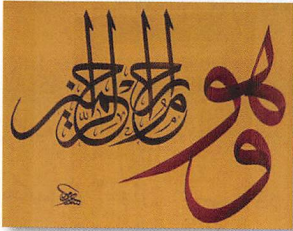 وهو أرحم الراحمين